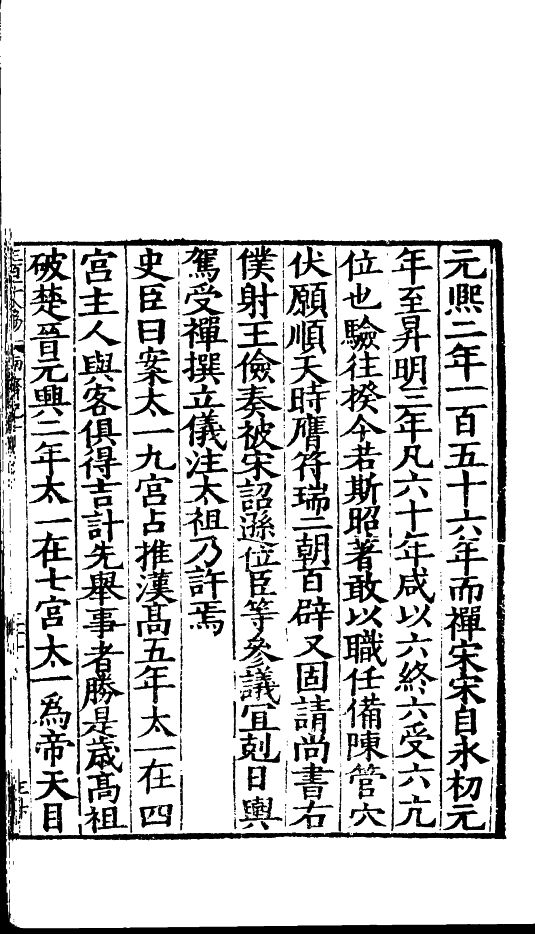 元熙二年一百五十六年而禪宋宋自永初元
年至昇明三年凡六十年咸以六終六受六亢
位也驗往揆今若斯昭著敢以職任備陳管穴
伏願順天時膺符瑞二朝百辟又固請尚書右
僕射王儉奏被宋詔遜位臣等參議宜剋日輿
駕受禪撰立儀注太祖乃許焉
史臣曰案太一九宮占推漢髙五年太一在四
宮主人與客俱得吉計先舉事者勝是歲髙祖
破楚晉元興二年太一在七宮太一爲帝天目